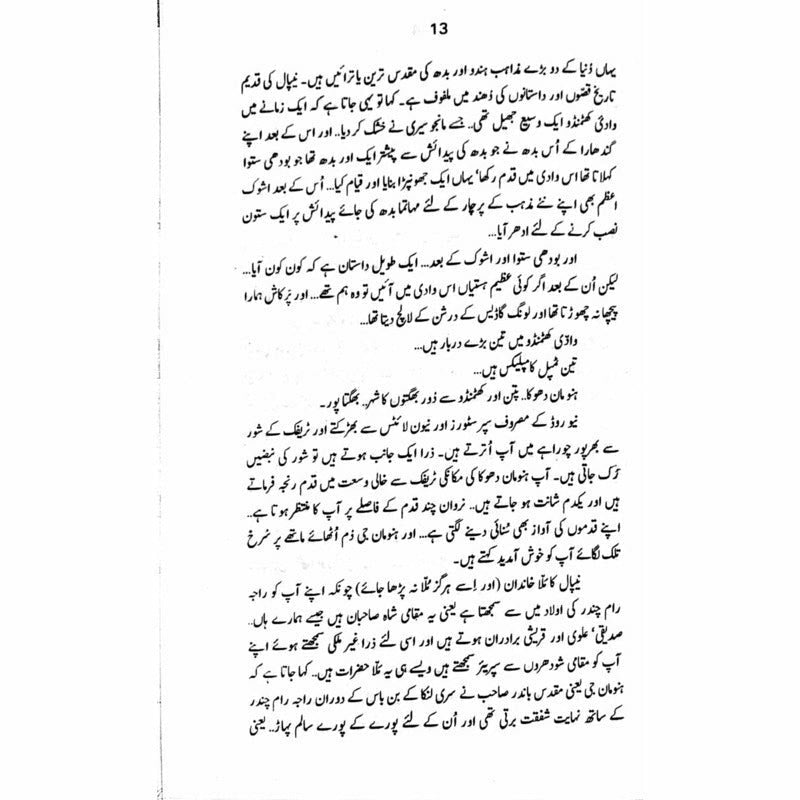 13
یہاں دُنیا کے دو بڑے مذاہب ہندو اور بدھ کی مقدس ترین یاترائیں ہیں۔ نیپال کی قدیم
تاریخ قصوں اور داستانوں کی دُھند میں ملفوف ہے۔ کہا تو یہی جاتا ہے کہ ایک زمانے میں
وادیٔ کھٹمنڈو ایک وسیع جھیل تھی.. جسے مانجو سیری نے خشک کر دیا.. اور اس کے بعد اپنے
گندھارا کے اُس بدھ نے جو بدھ کی پیدائش سے پیشتر ایک اور بدھ تھا جو بودھی ستوا
کہلاتا تھا اس وادی میں قدم رکھا، یہاں ایک جھونپڑا بنایا اور قیام کیا... اُس کے بعد اشوک
اعظم بھی اپنے نئے مذہب کے پرچار کے لئے مہاتما بدھ کی جائے پیدائش پر ایک ستون
نصب کرنے کے لئے ادھر آیا...
اور بودھی ستوا اور اشوک کے بعد... ایک طویل داستان ہے کہ کون کون آیا...
لیکن اُن کے بعد اگر کوئی عظیم ہستیاں اس وادی میں آئیں تو وہ ہم تھے... اور پرکاش ہمارا
پیچھا نہ چھوڑتا تھا اور لونگ گاڈیس کے درشن کے لالچ دیتا تھا...
وادیٔ کھٹمنڈو میں تین بڑے دربار ہیں...
تین ٹمپل کامپلیکس ہیں...
ہنومان دھوکا.. پتن اور کھٹمنڈو سے دُور بھگتوں کا شہر.. بھگتاپور۔
نیو روڈ کے مصروف سپر سٹورز اور نیون لائٹس سے بھڑکتے اور ٹریفک کے شور
سے بھرپور چوراہے میں آپ اُترتے ہیں۔ ذرا ایک جانب ہوتے ہیں تو شور کی نبضیں
رُک جاتی ہیں۔ آپ ہنومان دھوکا کی مکانکی ٹریفک سے خالی وسعت میں قدم رنجہ فرماتے
ہیں اور یکدم شانت ہو جاتے ہیں.. نروان چند قدم کے فاصلے پر آپ کا منتظر ہوتا ہے..
اپنے قدموں کی آواز بھی سُنائی دینے لگتی ہے... اور ہنومان جی دُم اُٹھائے ماتھے پر سُرخ
تلک لگائے آپ کو خوش آمدید کہتے ہیں۔
نیپال کا مَلّا خاندان (اور اِسے ہرگز مُلّا نہ پڑھا جائے) چونکہ اپنے آپ کو راجہ
رام چندر کی اولاد میں سے سمجھتا ہے یعنی یہ مقامی شاہ صاحبان ہیں جیسے ہمارے ہاں..
صدیقی، علوی اور قریشی برادران ہوتے ہیں اور اسی لئے ذرا غیر ملکی سمجھتے ہوئے اپنے
آپ کو مقامی شودھروں سے سپریئر سمجھتے ہیں ویسے ہی یہ مَلّا حضرات ہیں.. کہا جاتا ہے کہ
ہنومان جی یعنی مقدس باندر صاحب نے سری لنکا کے بن باس کے دوران راجہ رام چندر
کے ساتھ نہایت شفقت برتی تھی اور اُن کے لئے پورے کے پورے سالم پہاڑ.. یعنی